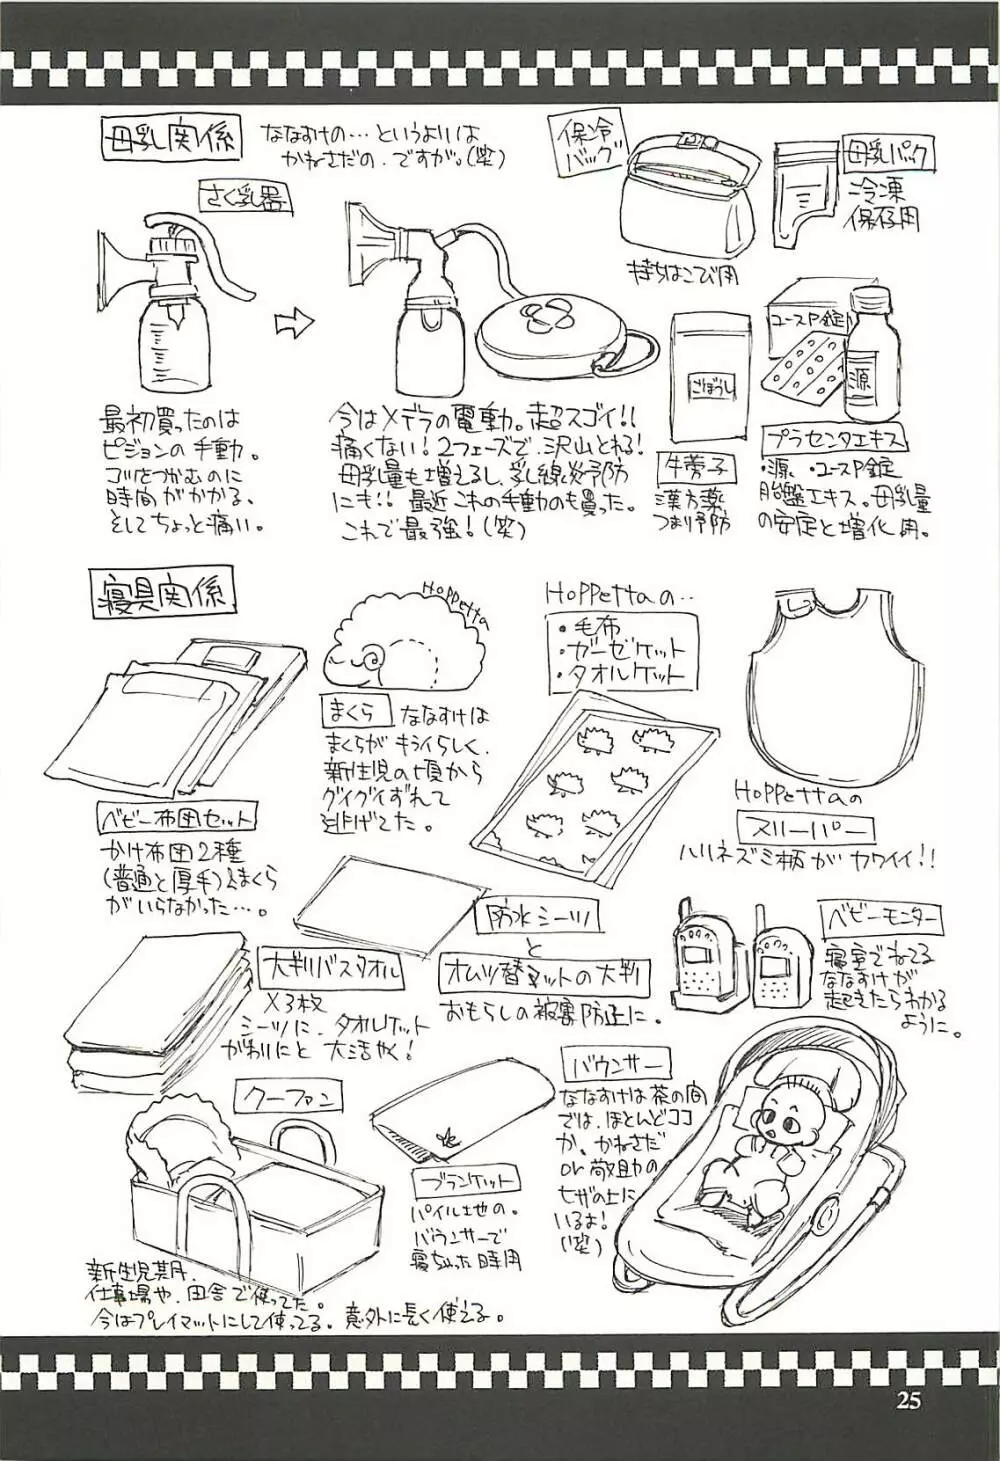 母乳関係
ななすけの…というよりは
かねさだの、ですが。(笑)
さく乳器
最初買ったのは
ピジョンの手動。
コツをつかむのに
時間がかかる、
そしてちょっと痛い。
今はメデラの電動。超スゴイ!!
痛くない!2フェーズで、沢山とれる!
母乳量も増えるし、乳線炎予防
にも!!最近これの手動のも買った。
これで最強!(笑)
保冷
バッグ
持ちはこび用
母乳パック
冷凍
保存用
ごぼうし
牛蒡子
漢方薬
つまり予防
ユースP錠
源
プラセンタエキス
・源 ・ユースP錠
胎盤エキス。母乳量
の安定と増化用。
寝具関係
ベビー布団セット
かけ布団2種
(普通と厚手)、まくら
がいらなかった…。
Hoppetta
まくら
ななすけは
まくらがキライらしく、
新生児の頃から
グイグイずれて
逃げてた。
Hoppettaの‥
・毛布
・ガーゼケット
・タオルケット
Hoppettaの
スリーパー
ハリネズミ柄がカワイイ!!
大判バスタオル
×3枚
シーツに、タオルケット
がわりにと大活やく!
防水シーツ
と
オムツ替マットの大判
おもらしの被害防止に。
ベビーモニター
寝室でねてる
ななすけが
起きたらわかる
ように。
クーファン
新生児期、
仕事場や、田舎で使ってた。
今はプレイマットにして使ってる。意外に長く使える。
ブランケット
パイル地の。
バウンサーで
寝ちゃった時用
バウンサー
ななすけは茶の間
では、ほとんどココ
か、かねさだ
or敬助の
ヒザの上に
いるよ!
(笑)
25